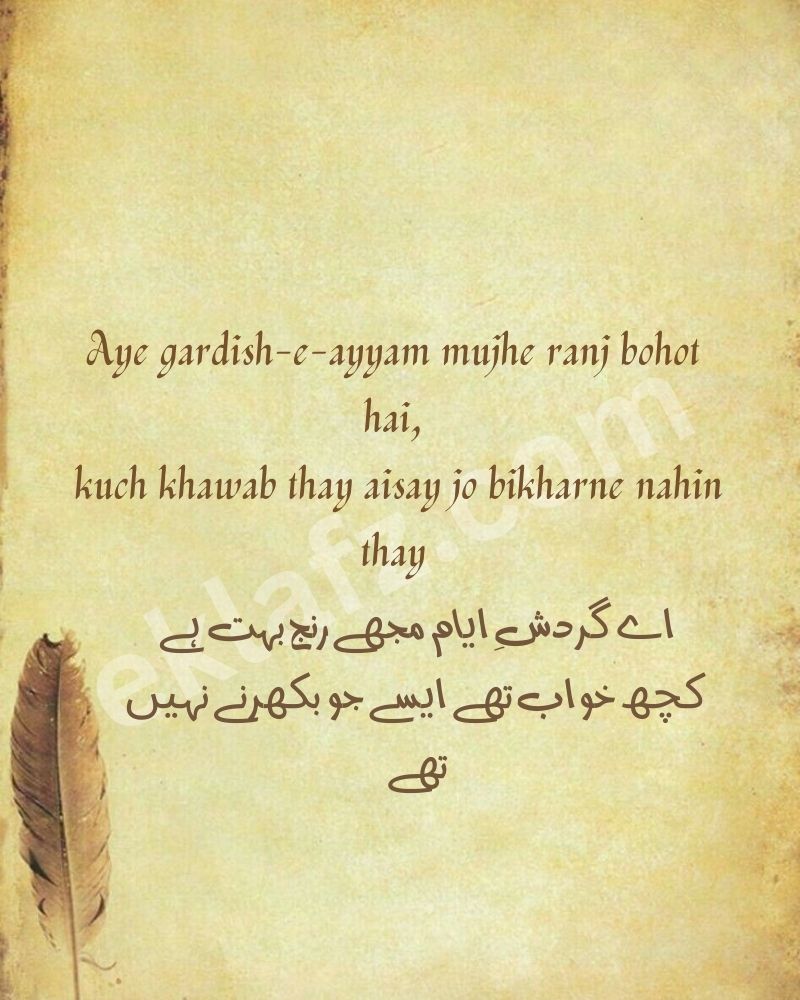 Aye gardish-e-ayyam mujhe ranj bohot
hai,
kuch khawab thay aisay jo bikharne nahin
thay
اے گردشِ ایام مجھے رنج بہت ہے
کچھ خواب تھے ایسے جو بکھرنے نہیں
تھے
eklafz.com